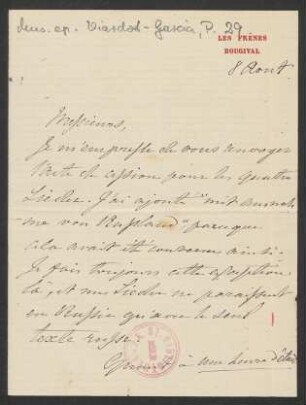 Mus. ep. Viardot-Garcia, P. 29
LES FRÊNES
BOUGIVAL
8 Aout.
Messieurs,
Je m'empresse de vous envoyer
l'acte de cession pour les quatre
Lieder. J'ai ajouté "mit ausnah-
me von Russland" parceque
cela avait été convenu ainsi.
Je fais toujours cette exception
là, et mes Lieder ne paraissent
en Russie qu'avec le seul
texte russe.
Quant à une heure d'étude